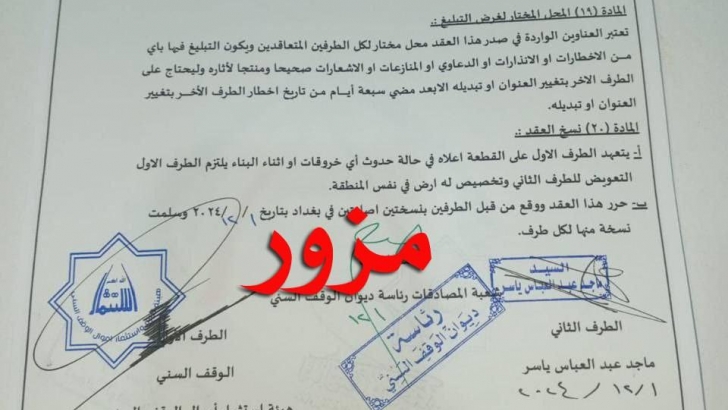 المادة (١٩) المحل المختار لغرض التبليغ :.
تعتبر العناوين الواردة في صدر هذا العقد محل مختار لكل الطرفين المتعاقدين ويكون التبليغ فيها باي
من الاخطارات او الانذارات او الدعاوي او المنازعات او الاشعارات صحيحا ومنتجا لأثاره وليحتاج على
الطرف الاخر بتغيير العنوان او تبديله الابعد مضي سبعة أيام من تاريخ اخطار الطرف الأخر بتغيير
العنوان او تبديله.
المادة (٢٠) نسخ العقد :.
أ- يتعهد الطرف الاول على القطعة اعلاه في حالة حدوث أي خروقات او اثناء البناء يلتزم الطرف الاول
التعويض للطرف الثاني وتخصيص له ارض في نفس المنطقة.
ب- حرر هذا العقد ووقع من قبل الطرفين بنسختين في بغداد بتاريخ ١/١٢/٢٠٢٤ وسلمت
نسخة منها لكل طرف.
مزور
السيد
ماجد عبد العباس ياسر
المصادقات رئاسة ديوان الوقف السني
١٢/١
رئاسة
ديوان الوقف السني
الطرف الثاني
الطرف
ماجد عبد العباس ياسر
الوقف السني
٢٠٢٤/١٢/١